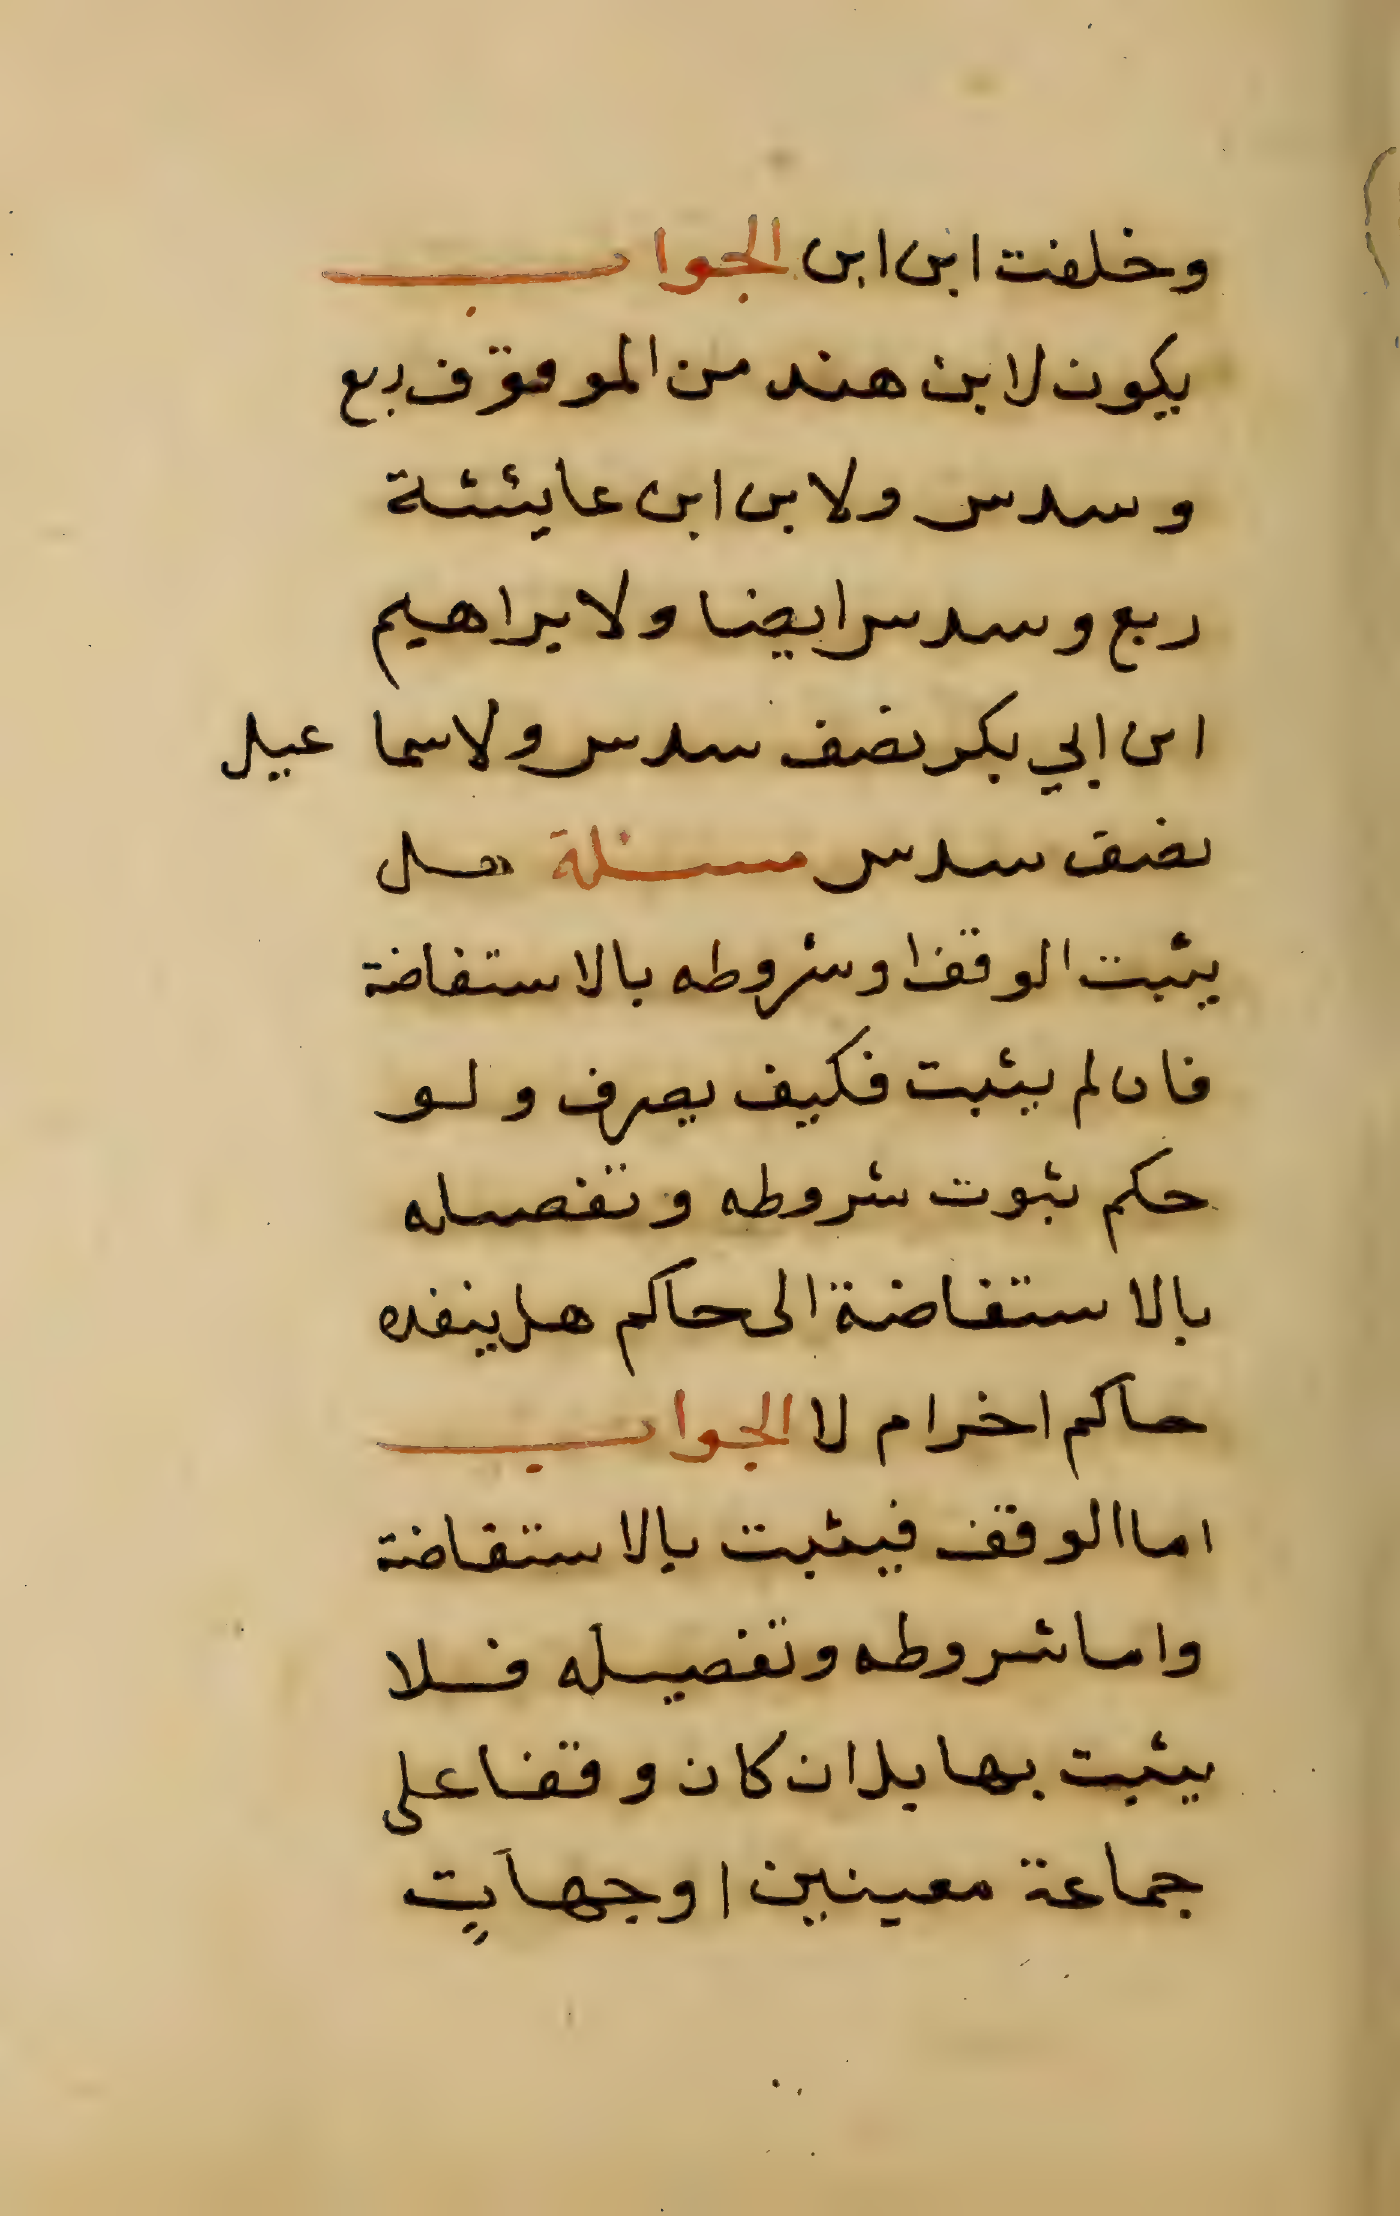 وخلفت ابن ابن الجواب
يكون لابن هند من الموقوف ربع
وسدس ولابن ابن عايشة
ربع وسدس ايضا ولابراهيم
ابن ابي بكر نصف سدس ولاسماعيل
نصف سدس مسئلة هل
يثبت الوقف او شروطه بالاستفاضة
فان لم يثبت فكيف يصرف ولو
حكم بثبوت شروطه وتفصيله
بالاستفاضة الى حاكم هل ينفذه
حاكم اخر ام لا الجواب
اما الوقف فيثبت بالاستفاضة
واما شروطه وتفصيله فلا
يثبت بها بل ان كان وقفا على
جماعة معينين او جهات